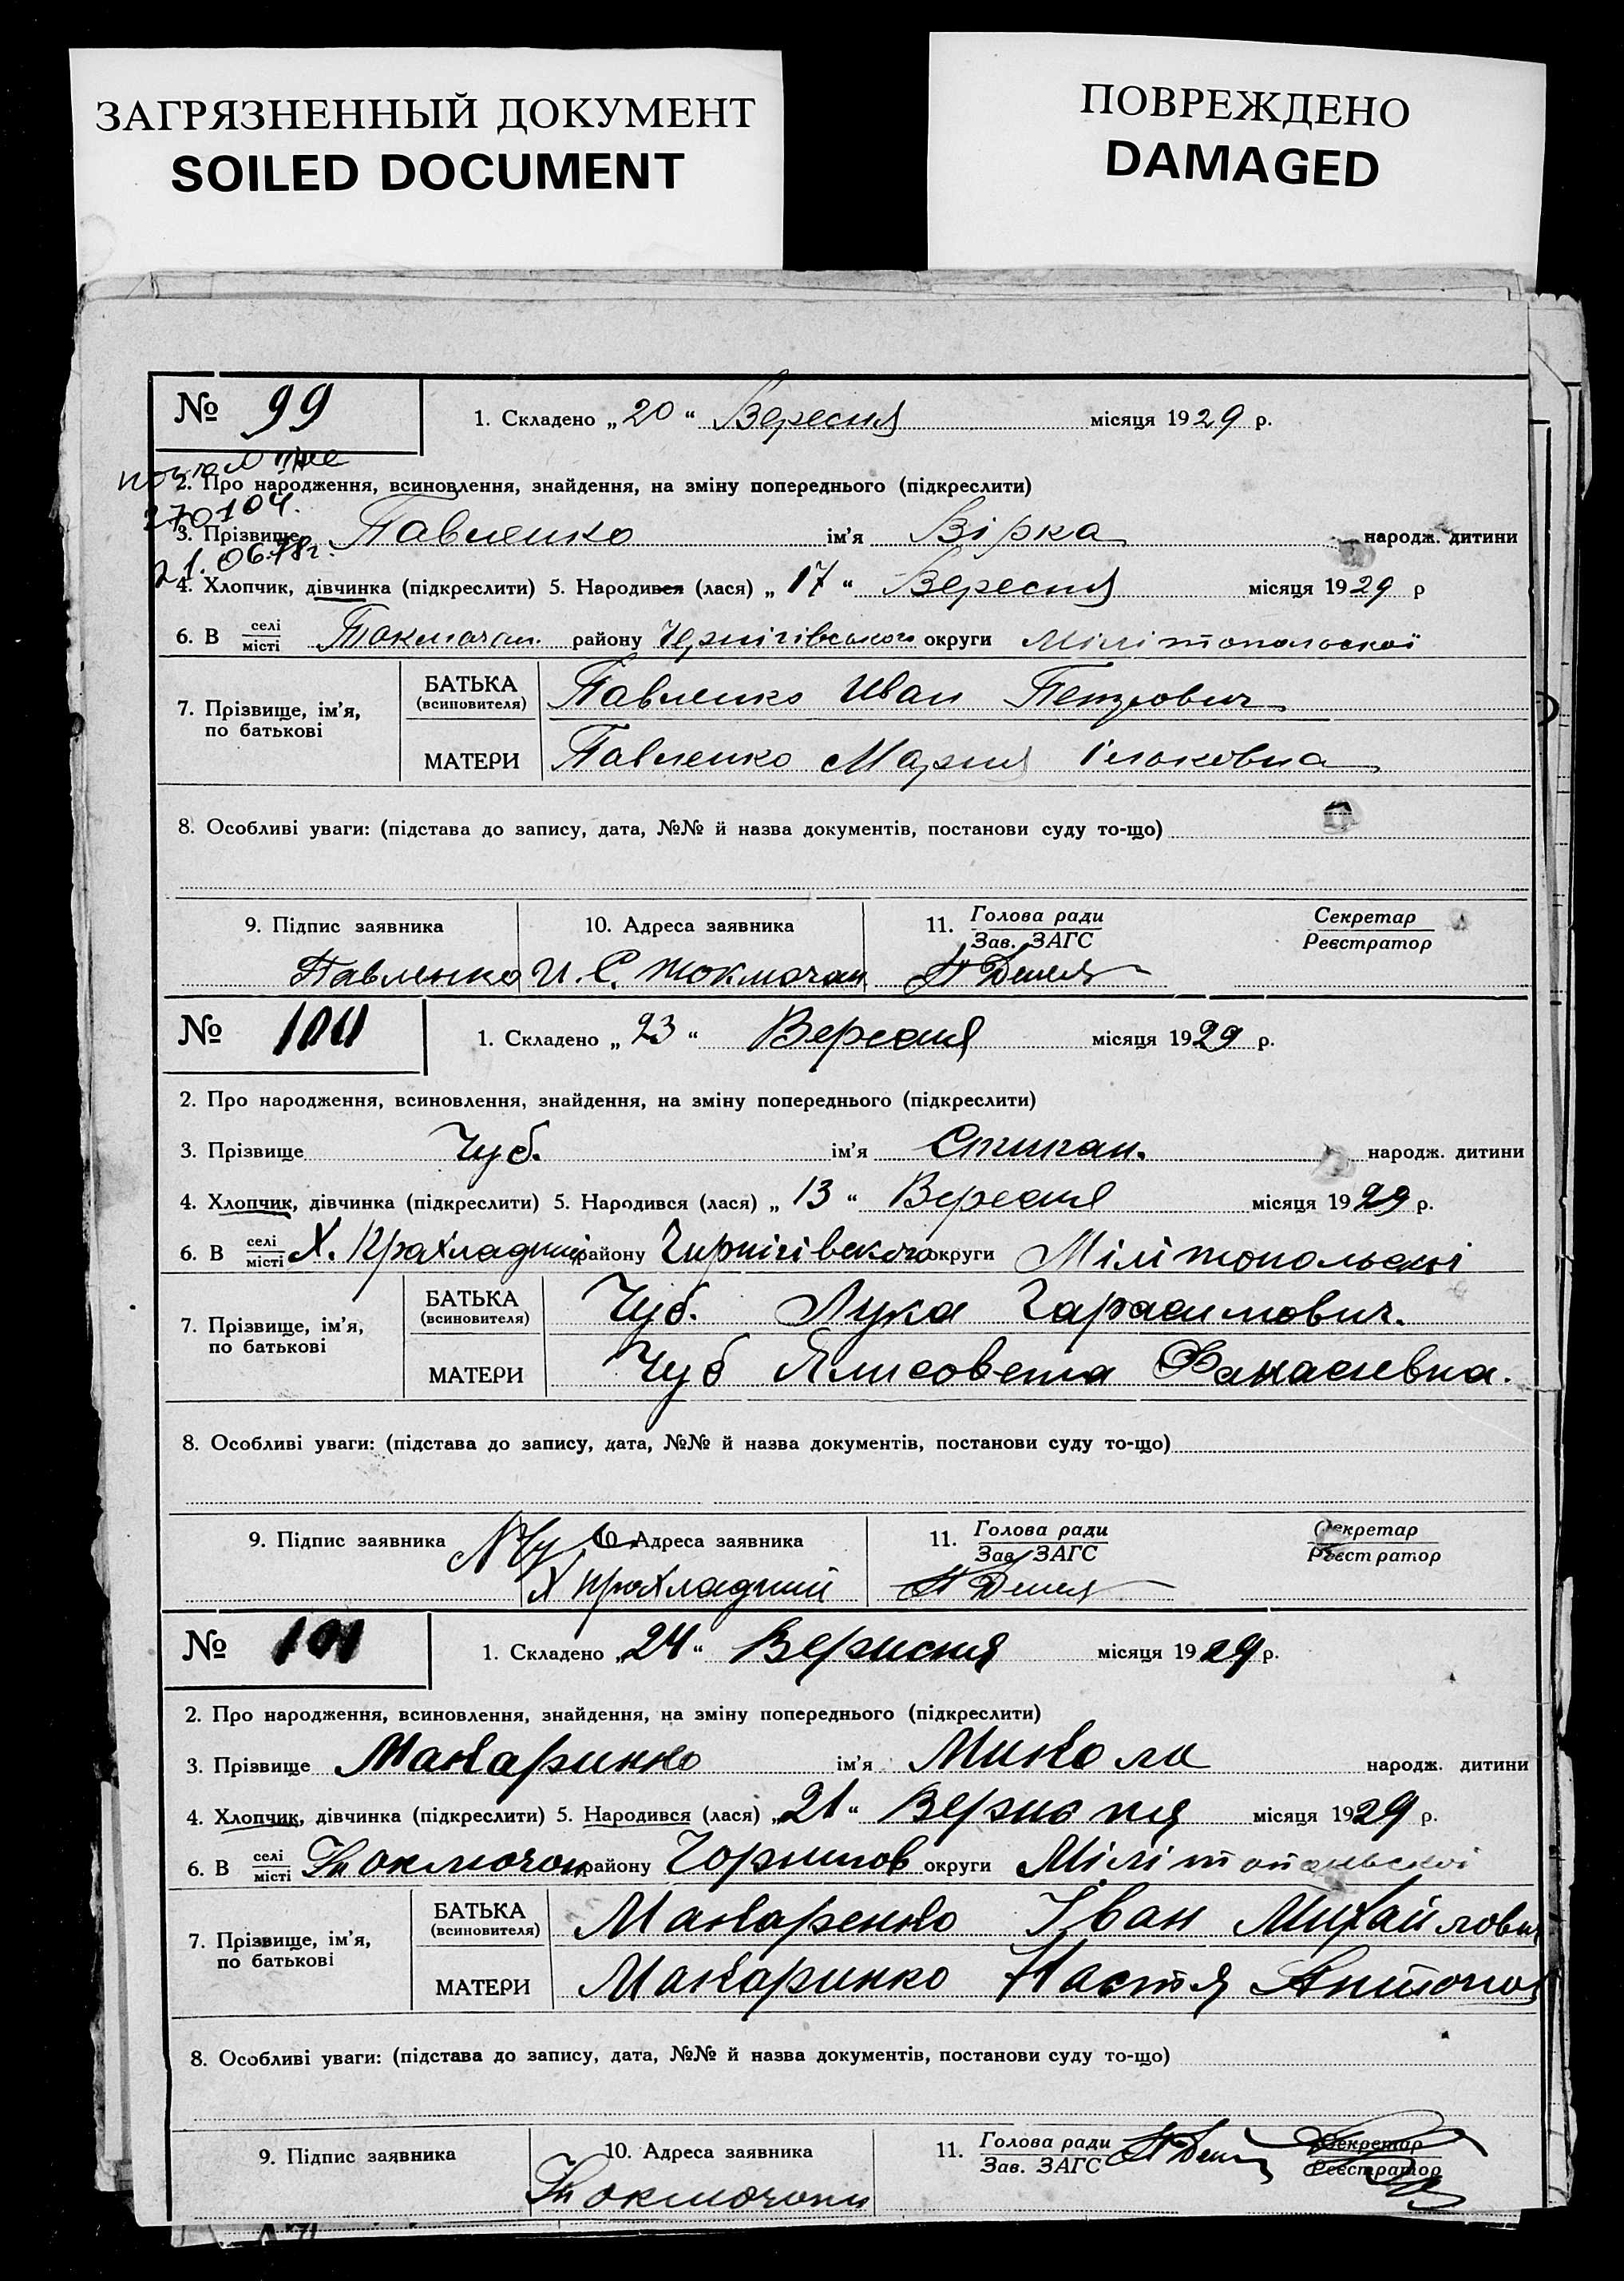 ЗАГРЯЗНЕННЫЙ ДОКУМЕНТ
SOILED DOCUMENT
ПОВРЕЖДЕНО
DAMAGED
№ 99
1. Складено „20“ Вересня місяця 1929 р.
2. Про народження, всиновлення, знайдення, на зміну попереднього (підкреслити)
270104.
21.06.78г.
3. Прізвище Павленко ім'я Вірка народж. дитини
4. Хлопчик, дівчинка (підкреслити) 5. Народився (лася) „17“ Вересня місяця 1929 р
6. В селі місті Токмачан. району Чернігівського округи Мілітопольської
7. Прізвище, ім'я, по батькові
БАТЬКА (всиновителя) Павленко Иван Петрович
МАТЕРИ Павленко Мария
8. Особливі уваги: (підстава до запису, дата, №№ й назва документів, постанови суду то-що)
9. Підпис заявника 10. Адреса заявника 11. Голова ради Зав. ЗАГС Секретар Реєстратор
Павленко И. С. Токмачан
№ 100
1. Складено „23“ Вересня місяця 1929 р.
2. Про народження, всиновлення, знайдення, на зміну попереднього (підкреслити)
3. Прізвище Чуб. ім'я Стипан. народж. дитини
4. Хлопчик, дівчинка (підкреслити) 5. Народився (лася) „13“ Вересня місяця 1929 р.
6. В селі місті Х. Прохладний району Чирнігівского округи Мілітопольскі
7. Прізвище, ім'я, по батькові
БАТЬКА (всиновителя) Чуб. Лука Гарасимович.
МАТЕРИ Чуб Ялисовета Фанасиевна.
8. Особливі уваги: (підстава до запису, дата, №№ й назва документів, постанови суду то-що)
9. Підпис заявника 10. Адреса заявника 11. Голова ради Зав. ЗАГС Секретар Реєстратор
Х прохладний
№ 101
1. Складено „24“ Верисня місяця 1929 р.
2. Про народження, всиновлення, знайдення, на зміну попереднього (підкреслити)
3. Прізвище Макаринко ім'я Микола народж. дитини
4. Хлопчик, дівчинка (підкреслити) 5. Народився (лася) „21“ Верисня місяця 1929 р.
6. В селі місті Токмочон району округи Мілітопольскої
7. Прізвище, ім'я, по батькові
БАТЬКА (всиновителя) Макаренко Іван Михайлович
МАТЕРИ Макаринко Настя
8. Особливі уваги: (підстава до запису, дата, №№ й назва документів, постанови суду то-що)
9. Підпис заявника 10. Адреса заявника 11. Голова ради Зав. ЗАГС Секретар Реєстратор